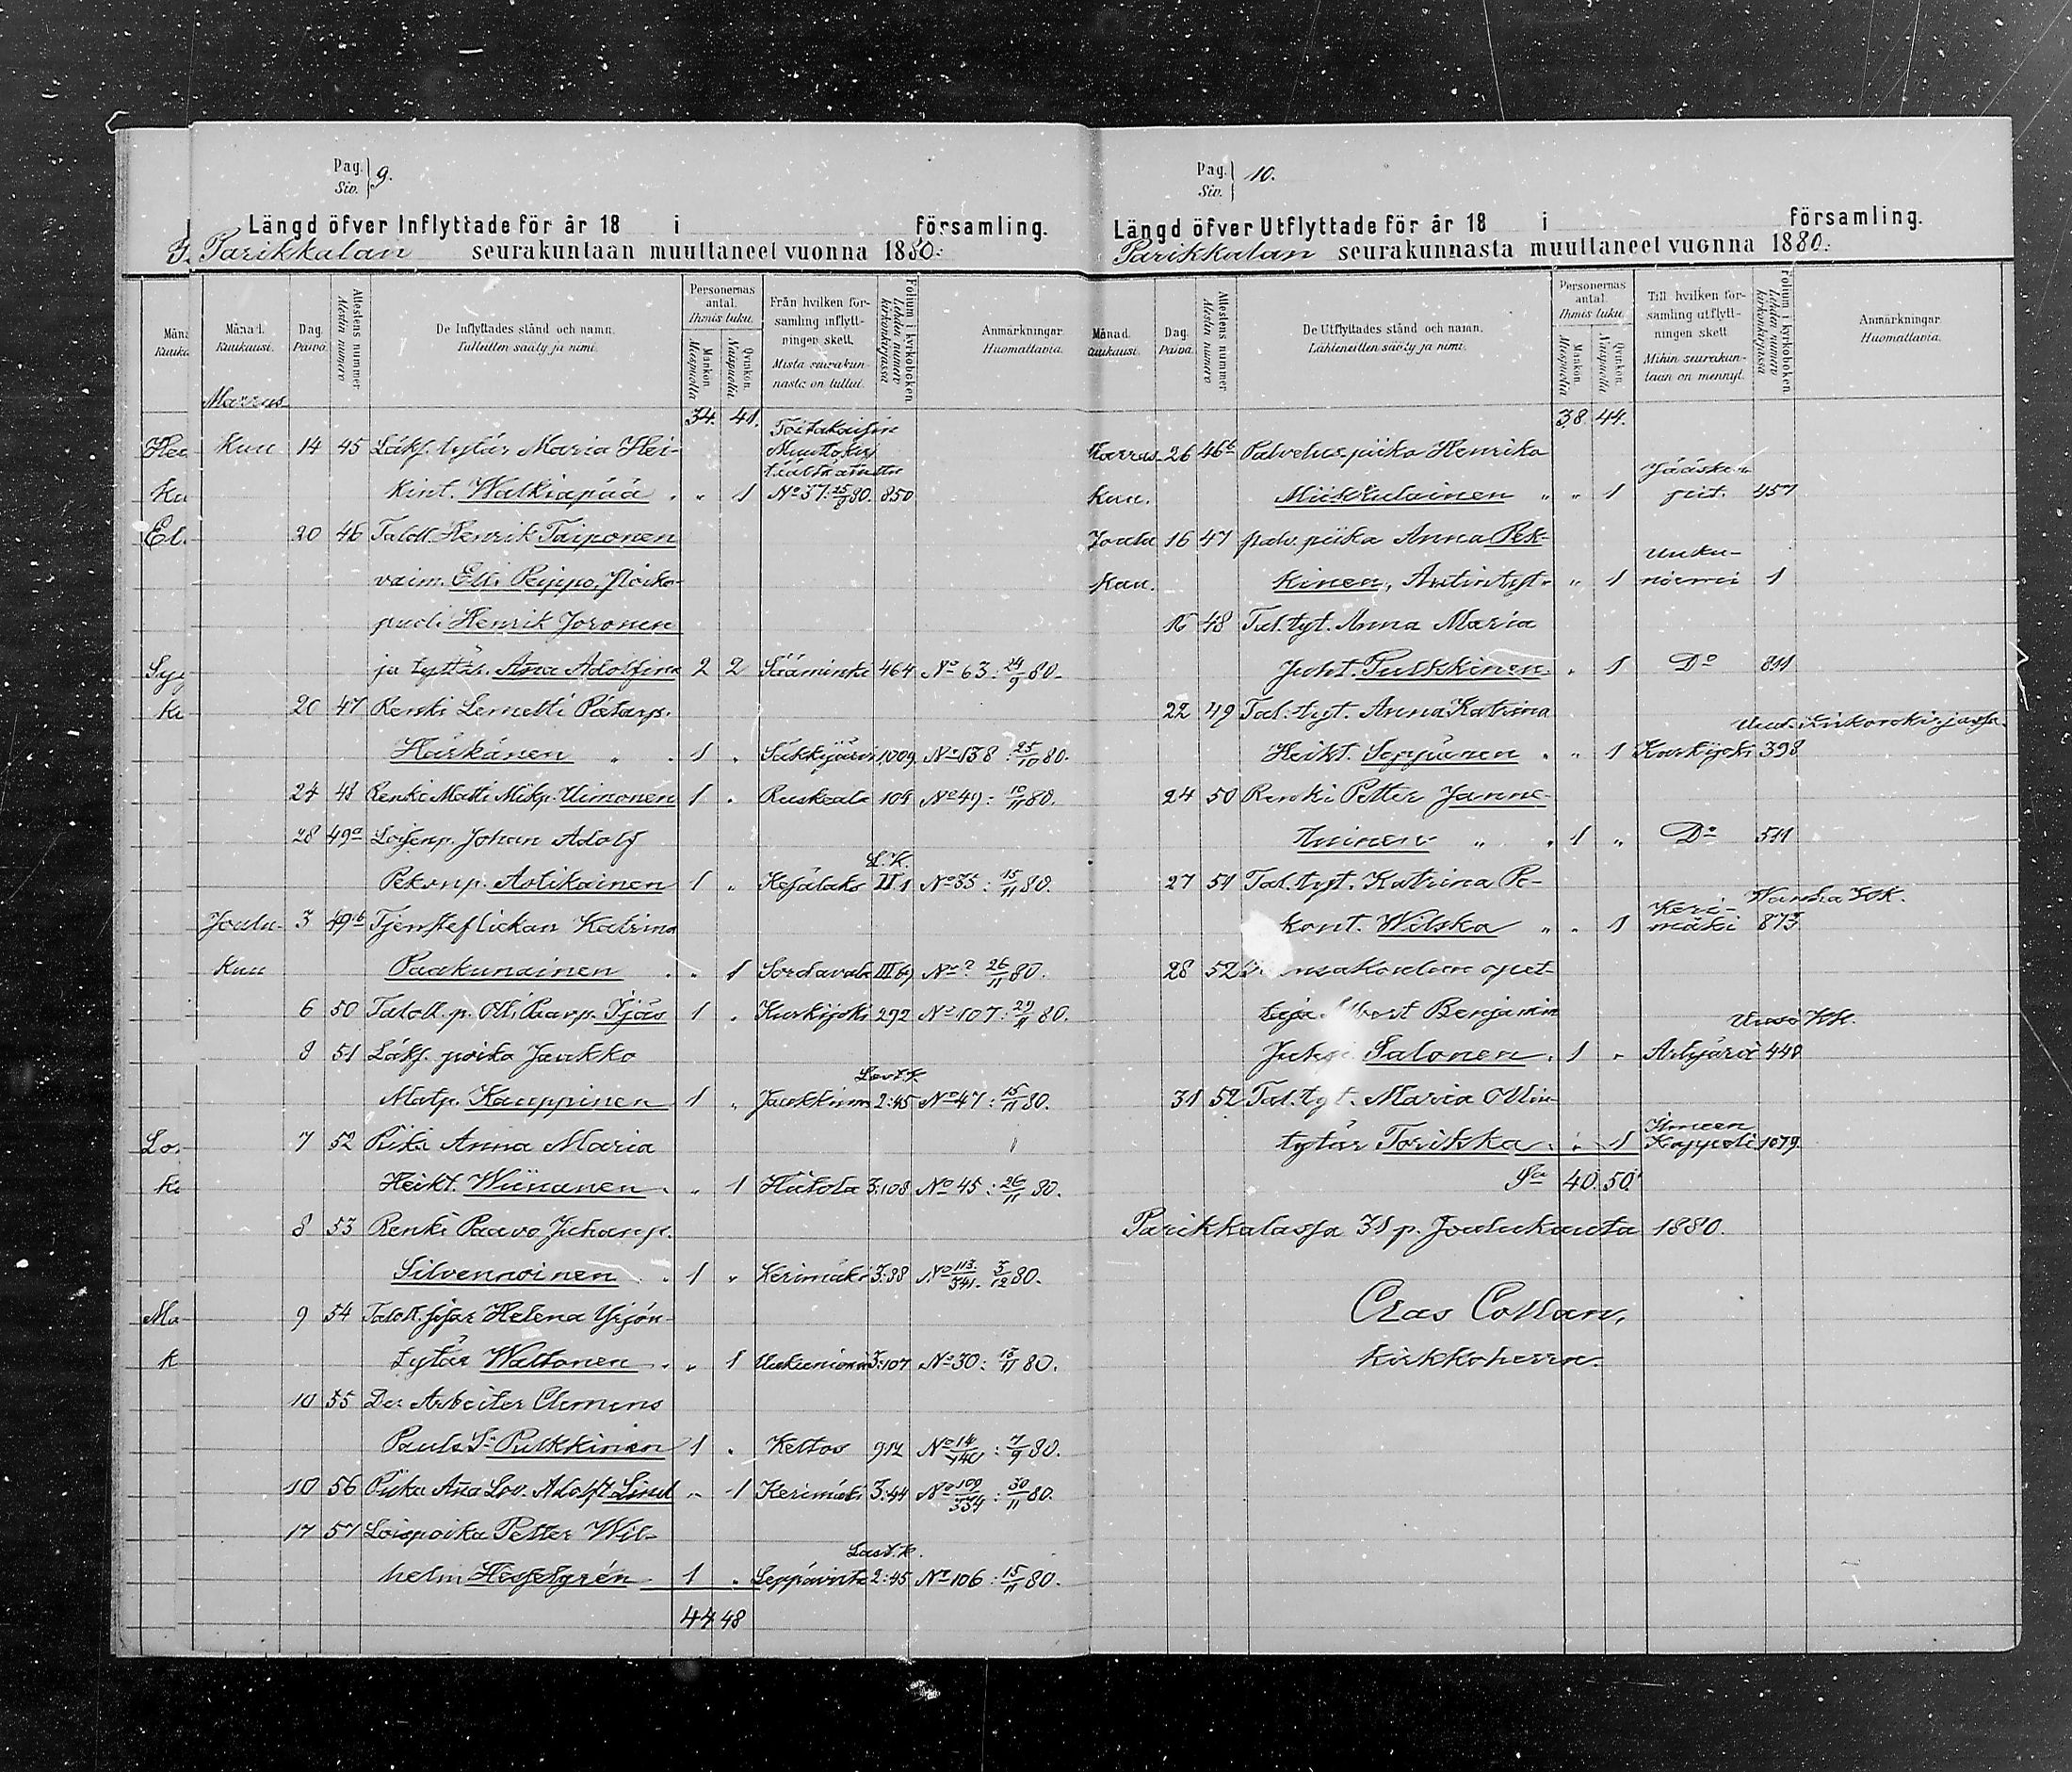 Pag. Siv. 9.
Längd öfver Inflyttade för år 18 i församling.
Parikkalan seurakuntaan muuttaneet vuonna 1880.
Månad. Kuukausi.
Dag. Päivä.
Attestens nummer Attestin numero
De Inflyttades stånd och namn. Tulleitten sääty ja nimi.
Personernas antal. Ihmis luku.
Mankön. Miespuolia
Qvinkön. Naispuolia
Från hvilken församling inflyttningen skett. Mistä seurakunnasta on tullut.
Folium i kyrkoboken. Lehden numero kirkonkirjassa
Anmärkningar. Huomattavia.
Marras- 34. 41.
kuu 14 45 Läksf. tytär Maria Hei-
kint. Walkiapää " 1 No 37: 80. 850
20 46 Taloll. Henrik Taiponen
vaim. Elli Peippo,
puoli Henrik Joronen
ja tyttär. Anna Adolfina 2 2 Sääminki 464 No 63: 24/9 80.
20 47 Renki Lemetti Pietarp.
Härkänen 1 " Säkkijärvi 1009 No 138: 25/10 80.
24 48 Renki Matti Mikp. Uimonen 1 " Ruskeala 104 No 49: 10/11 80.
28 49a Loisenp. Johan Adolf
Pekanp. Avtikainen 1 " Kesälaks L.K. II 1 No 35: 15/11 80.
Joulu- 3 49b Tjensteflickan Katrina
kuu Paakunainen " 1 Sordavala III 69 No ? 26/11 80.
6 50 Taloll. p. Olli Paavp. Tjäs 1 " Kurkijoki 292 No 107: 29/11 80.
8 51 Läksf. poika Jaakko
Matp. Kauppinen 1 " Jaakkima 2:45 No 47: 15/11 80.
7 52 Piika Anna Maria
Heikt. Wiinanen " 1 Hiitola 3:108 No 45: 26/11 80.
8 53 Renki Paavo Juhanp.
Silvennoinen 1 " Kerimäki 3:88 No 113/341. 3/12 80.
9 54 Taloll. sisar Helena Yrjön
tytär Waltonen " 1 Uukuniemi 3:107 No 30: 13/11 80.
10 55 Der Arbeiter Clemens
Pauls S: Pulkkinen 1 " Keltos 912 No 14/140: 7/9 80.
10 56 Piika Anna Lov. Adolft. Lind " 1 Kerimäki 3:44 No 109/334: 30/11 80.
17 57 Loispoika Petter Wil-
helm Hesselgrén 1 " Leppävirta 2:45 No 106: 15/11 80.
44 48
Pag. Siv. 10.
Längd öfver Utflyttade för år 18 i församling.
Parikkalan seurakunnasta muuttaneet vuonna 1880.
Månad. Kuukausi.
Dag. Päivä.
Attestens nummer Attestin numero
De Utflyttades stånd och namn. Lähteneitten sääty ja nimi.
Personernas antal. Ihmis luku.
Mankön. Miespuolia
Qvinkön. Naispuolia
Till hvilken församling utflyttningen skett. Mihin seurakuntaan on mennyt.
Folium i kyrkoboken Lehden numero kirkonkirjassa
Anmärkningar. Huomattavia.
38. 44.
Marras 26 46b Palveluspiika Henrika
kuu. Miikkulainen " 1 Jääsken pit. 457
Joulu 16 47 palv. piika Anna Pek-
kuu. kinen, Antintyt. " 1 Uuku-niemi 1
16 48 Tal. tyt. Anna Maria
Juht. Pulkkinen " 1 Do 811
22 49 Tal. tyt. Anna Katrina
Heikt. Seppänen " 1 Kurkijoki 398
24 50 Renki Petter Janne-
Huinen 1 " Do 511
27 51 Tal. tyt. Katrina Pe-
kant. Wilska " 1 Keri-mäki Wanha KK. 873
28 52 Kansakoulun opet-
taja Albert Benjamin
Salonen 1 " Artjärvi Uusi KK. 448
31 52 Tal. tyt. Maria Ollin
tytär Torikka " 1 Kappeli 1079
Sa 40. 50.
Parikkalassa 31 p. Joulukuuta 1880.
Clas Collan,
Kirkkoherra.